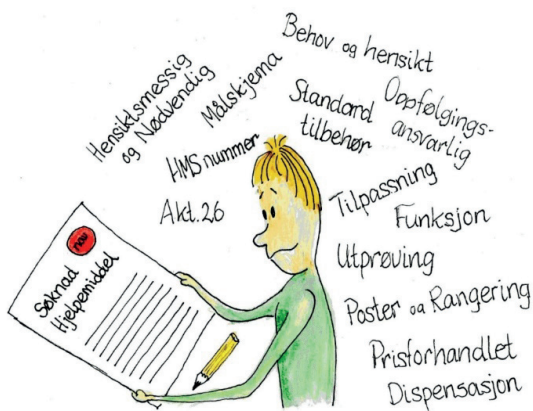 Behov og hensikt
Hensiktsmessig
og Nødvendig
Målskjema
Standard
tilbehør
Oppfølgings-
ansvarlig
HMS nummer
Akt.26
Tilpassning
Funksjon
Utprøving
Poster og Rangering
Prisforhandlet
Dispensasjon
nav
Søknad
Hjelpemiddel